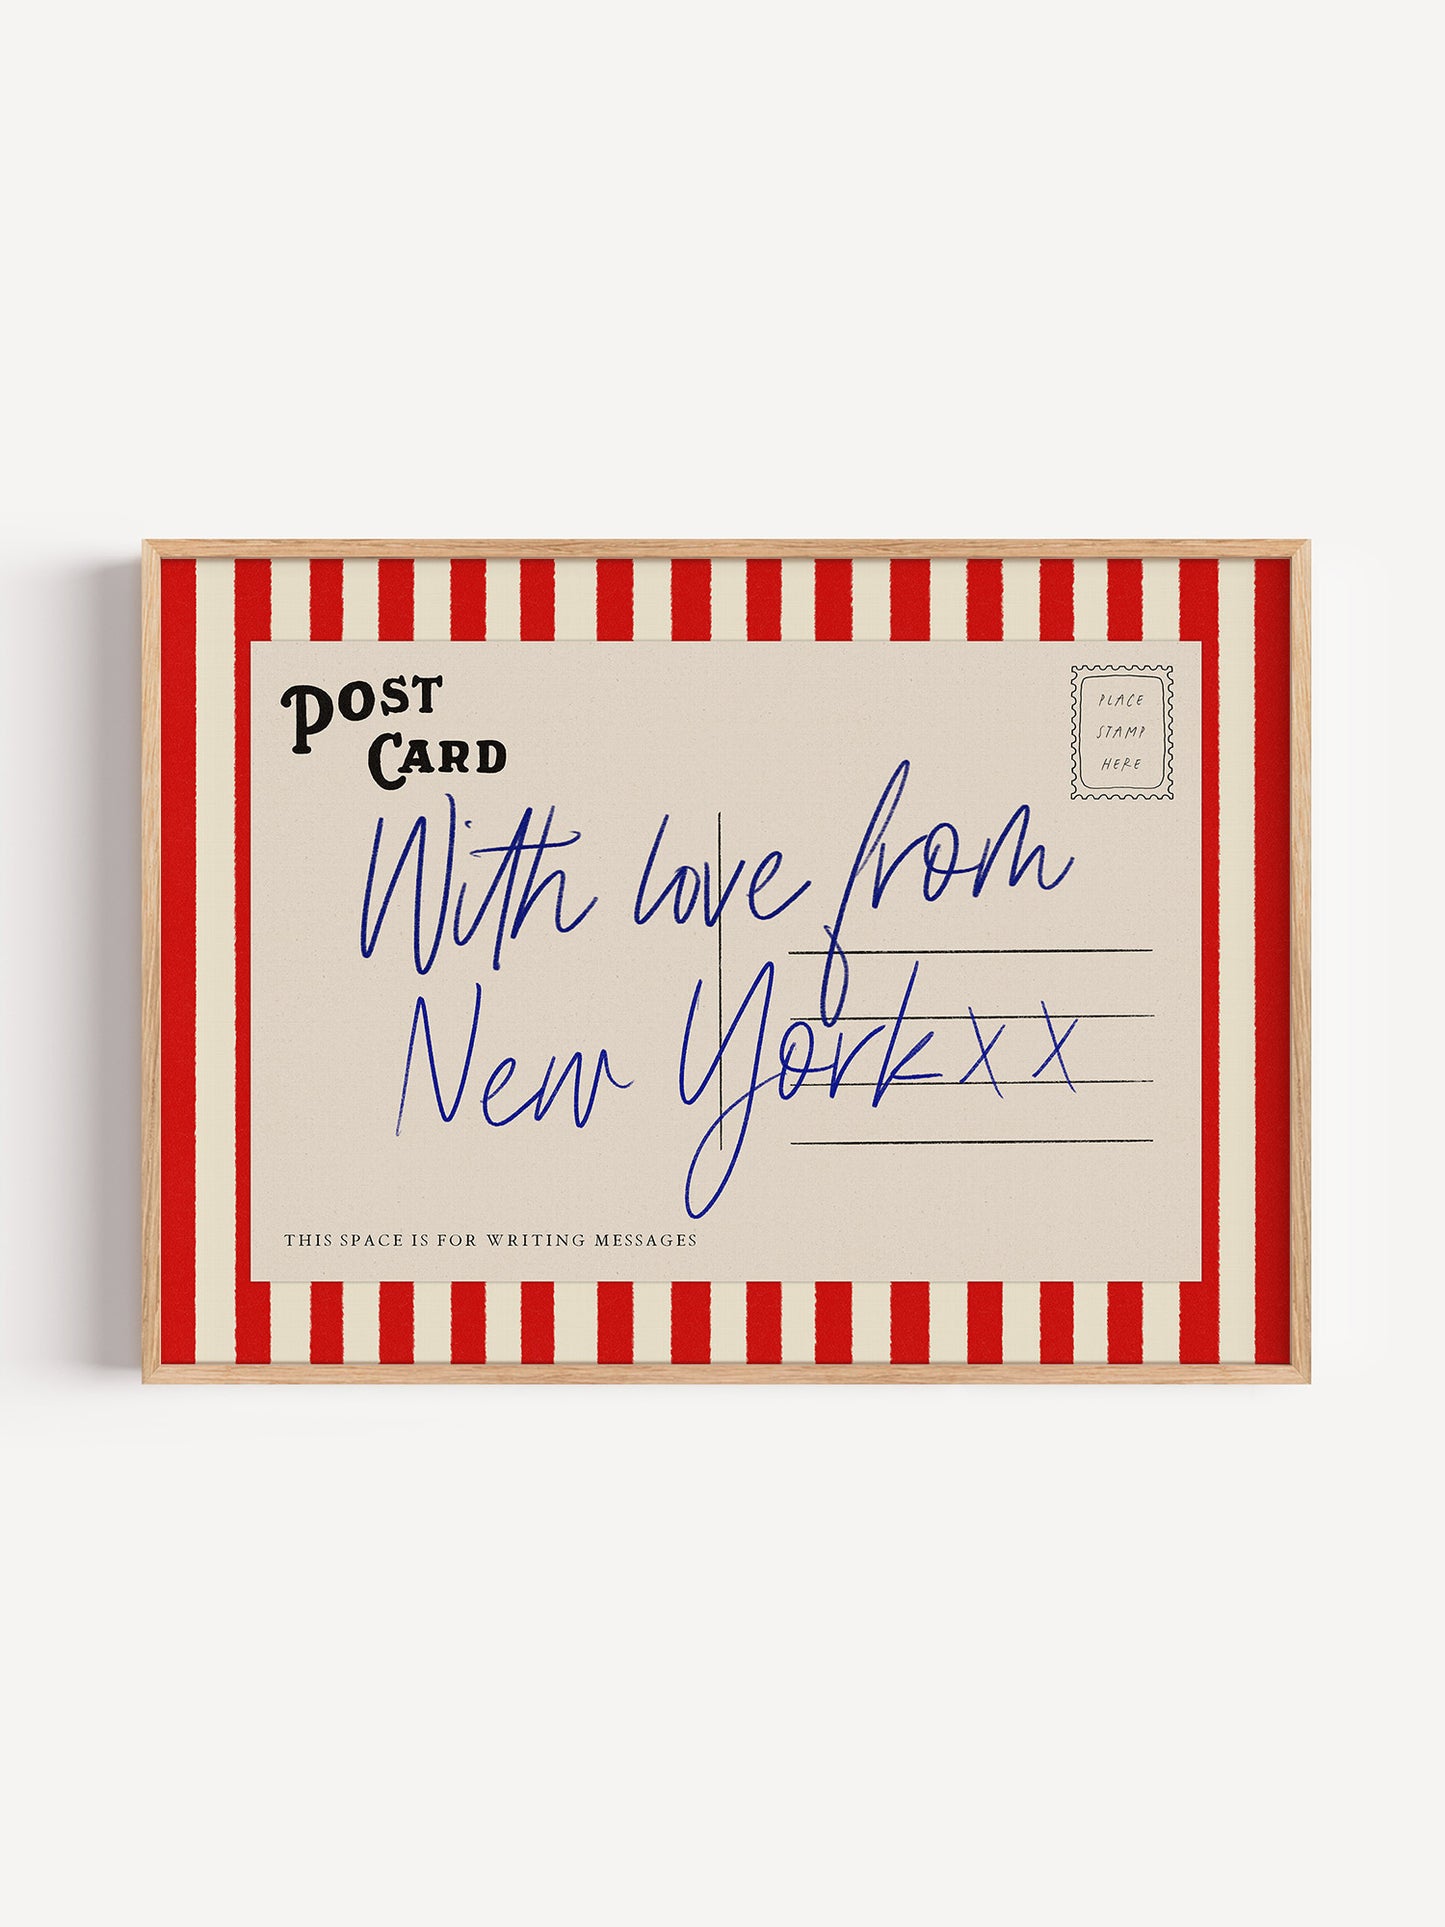 POST
CARD
PLACE
STAMP
HERE
With love from
New York x x
THIS SPACE IS FOR WRITING MESSAGES